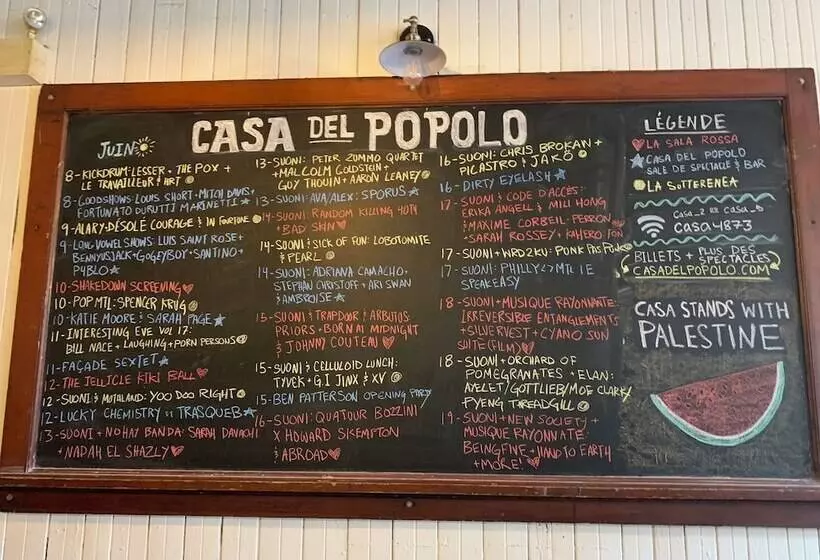 CASA DEL POPOLO
JUIN
8-KICKDRUM: LESSER + THE POX +
LE TRAVAILLEUR + HRT
8-GOODSHOWS: LOUIS SHORT + MITCH DAVIS +
FORTUNATO DURUTTI MARINETTI
9-ALARY + DÉSOLÉ COURAGE & IN FORTUNE
9-LONG VOWEL SHOWS: LUIS SAINT ROSE +
BENNYUSJACK + GOGEYBOY + SANTINO +
P4BLO
10-SHAKEDOWN SCREENING
10-POP MTL: SPENCER KRUG
10-KATIE MOORE & SARAH PAGE
11-INTERESTING EVE VOL 17:
BILL NACE + LAUGHING + PORN PERSONS
11-FAÇADE SEXTET
12-THE JELLICLE KIKI BALL
12-SUONI & MUTUALAND: YOO DOO RIGHT
12-LUCKY CHEMISTRY :: TRASQUEB
13-SUONI + NO HAY BANDA: SARAH DAVACHI
+ NADAH EL SHAZLY
13-SUONI: PETER ZUMMO QUARTET
+ MALCOLM GOLDSTEIN +
GUY THOUIN + AARON LEANEY
13-SUONI: AVA/ALEX: SPORUS
14-SUONI: RANDOM KILLING
+ BAD SKIN
14-SUONI & SICK OF FUN: LOBOTOMITE
& PEARL
14-SUONI: ADRIANA CAMACHO,
STEPHAN CHRISTOFF + ARI SWAN
& AMBROISE
15-SUONI & TRAPDOOR & ARBUTUS:
PRIORS + BORN AT MIDNIGHT
& JOHNNY COUTEAU
15-SUONI & CELLULOID LUNCH:
TYVEK + G.I JINX & XV
15-BEN PATTERSON OPENING PARTY
16-SUONI: QUATUOR BOZZINI
X HOWARD SKEMPTON
& ABROAD
16-SUONI: CHRIS BROKAN +
PICASTRO & JAKO
16-DIRTY EYELASH
17-SUONI & CODE D'ACCÈS:
ERIKA ANGELL & MILI HONG
& MAXIME CORBEIL-PERRON
+ SARAH ROSSEY +
17-SUONI + NRD2KU: PONK
17-SUONI: PHILLY<>MTL IE
SPEAKEASY
18-SUONI + MUSIQUE RAYONNANTE:
IRREVERSIBLE ENTANGLEMENTS
+ SILVERVEST + CYANO SUN
SUITE (FILM)
18-SUONI + ORCHARD OF
POMEGRANATES + ELAN:
AYELET/GOTTLIEB/MOE CLARK
PYENG THREADGILL
19-SUONI + NEW SOCIETY +
MUSIQUE RAYONNATE
BEINGFINE + UNND TO EARTH
+ MORE!
LÉGENDE
LA SALA ROSSA
CASA DEL POPOLO
SALE DE SPECTACLE & BAR
LA SOTTERENEA
CASA_2 OR CASA_5
CASA4873
BILLETS + PLUS DES
SPECTACLES
CASADELPOPOLO.COM
CASA STANDS WITH
PALESTINE